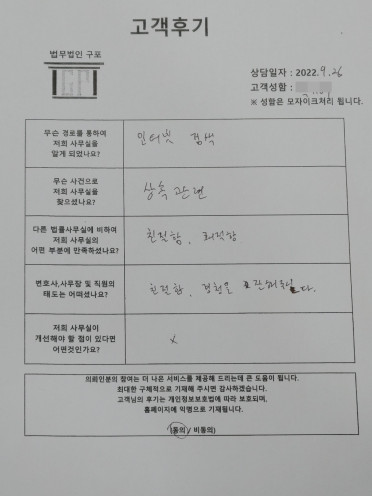 고객후기
법무법인 구포
상담일자 : 2022. 9. 26
고객성함 :
※ 성함은 모자이크처리 됩니다.
무슨 경로를 통하여
저희 사무실을
알게 되었나요?
인터넷 검색
무슨 사건으로
저희 사무실을
찾으셨나요?
상속 관련
다른 법률사무실에 비하여
저희 사무실의
어떤 부분에 만족하셨나요?
친절함, 쾌적함
변호사,사무장 및 직원의
태도는 어떠셨나요?
친절함,
저희 사무실이
개선해야 할 점이 있다면
어떤것인가요?
x
의뢰인분의 참여는 더 나은 서비스를 제공해 드리는데 큰 도움이 됩니다.
최대한 구체적으로 기재해 주시면 감사하겠습니다.
고객님의 후기는 개인정보보호법에 따라 보호되며,
홈페이지에 익명으로 기재됩니다.
(동의 / 비동의)